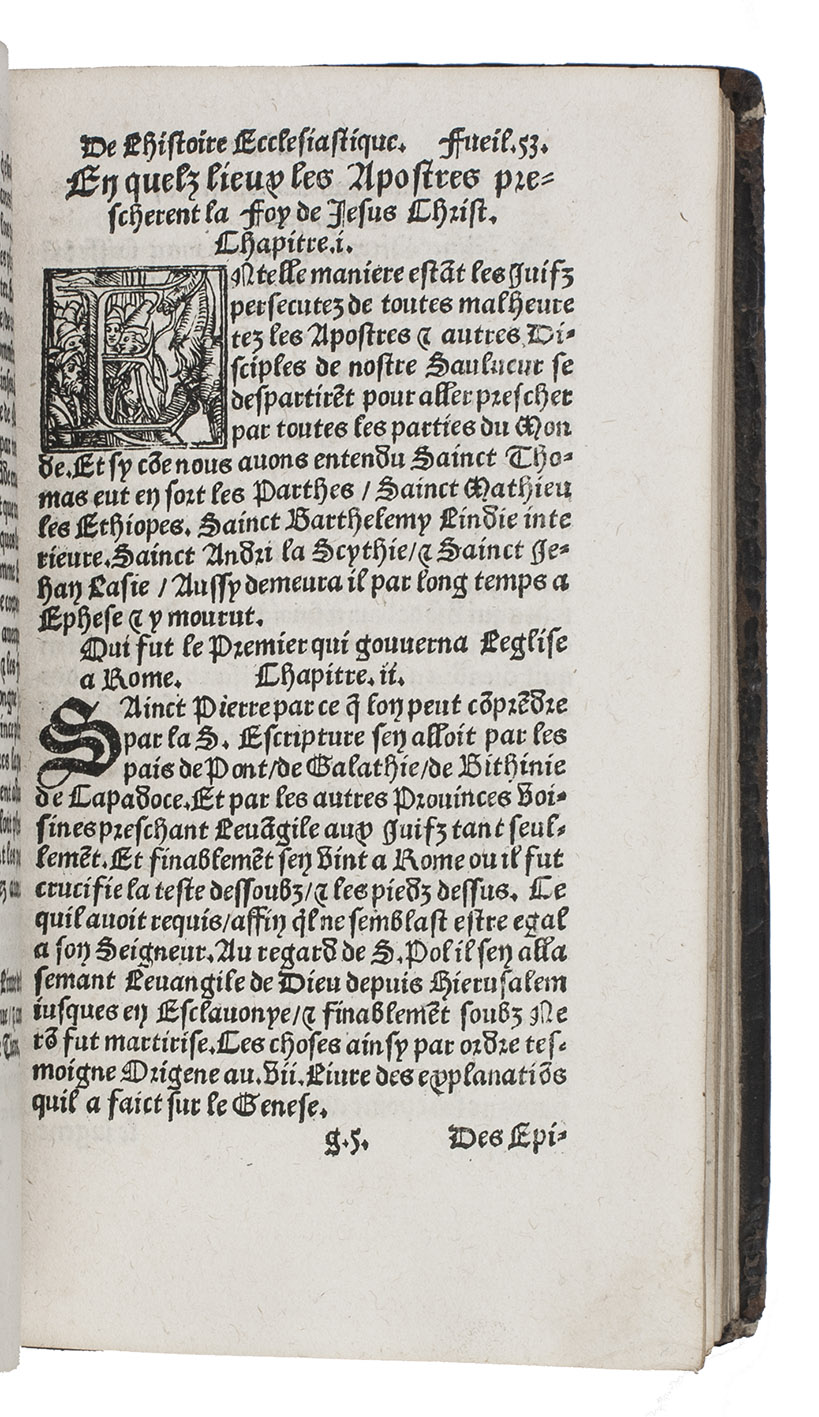 De Lhistoire Ecclesiastique. Fueil.53.
En quelz lieux les Apostres pre=
scherent la Foy de Jesus Christ.
Chapitre.i.
ENtelle maniere estãt les Juifz
persecutez de toutes malheure
tez les Apostres & autres Di=
sciples de nostre Saulueur se
despartirẽt pour aller prescher
par toutes les parties du Mon
de. Et sy cõe nous auons entendu Sainct Tho=
mas eut en sort les Parthes / Sainct Mathieu
les Ethiopes. Sainct Barthelemy Lindie inte
rieure. Sainct Andri la Scythie/& Sainct Je=
han Lasie / Aussy demeura il par long temps a
Ephese & y mourut.
Qui fut le Premier qui gouuerna Leglise
a Rome. Chapitre.ii.
SAinct Pierre par ce q̃ lon peut cõprẽdre
par la S. Escripture sen alloit par les
pais de Pont/de Galathie/de Bithinie
de Capadoce. Et par les autres Prouinces voi=
sines preschant Leuãgile aux Juifz tant seul=
lemẽt. Et finablemẽt sen vint a Rome ou il fut
crucifie la teste dessoubz/& les piedz dessus. Ce
quil auoit requis/affin q̃l ne semblast estre egal
a son Seigneur. Au regard de S. Pol il sen alla
semant Leuangile de Dieu depuis Hierusalem
iusques en Esclauonye/& finablemẽt soubz Ne
rõ fut martirise. Ces choses ainsy par ordre tes=
moigne Origene au.vii. Liure des explanatiõs
quil a faict sur le Genese.
g.5. Des Epi=